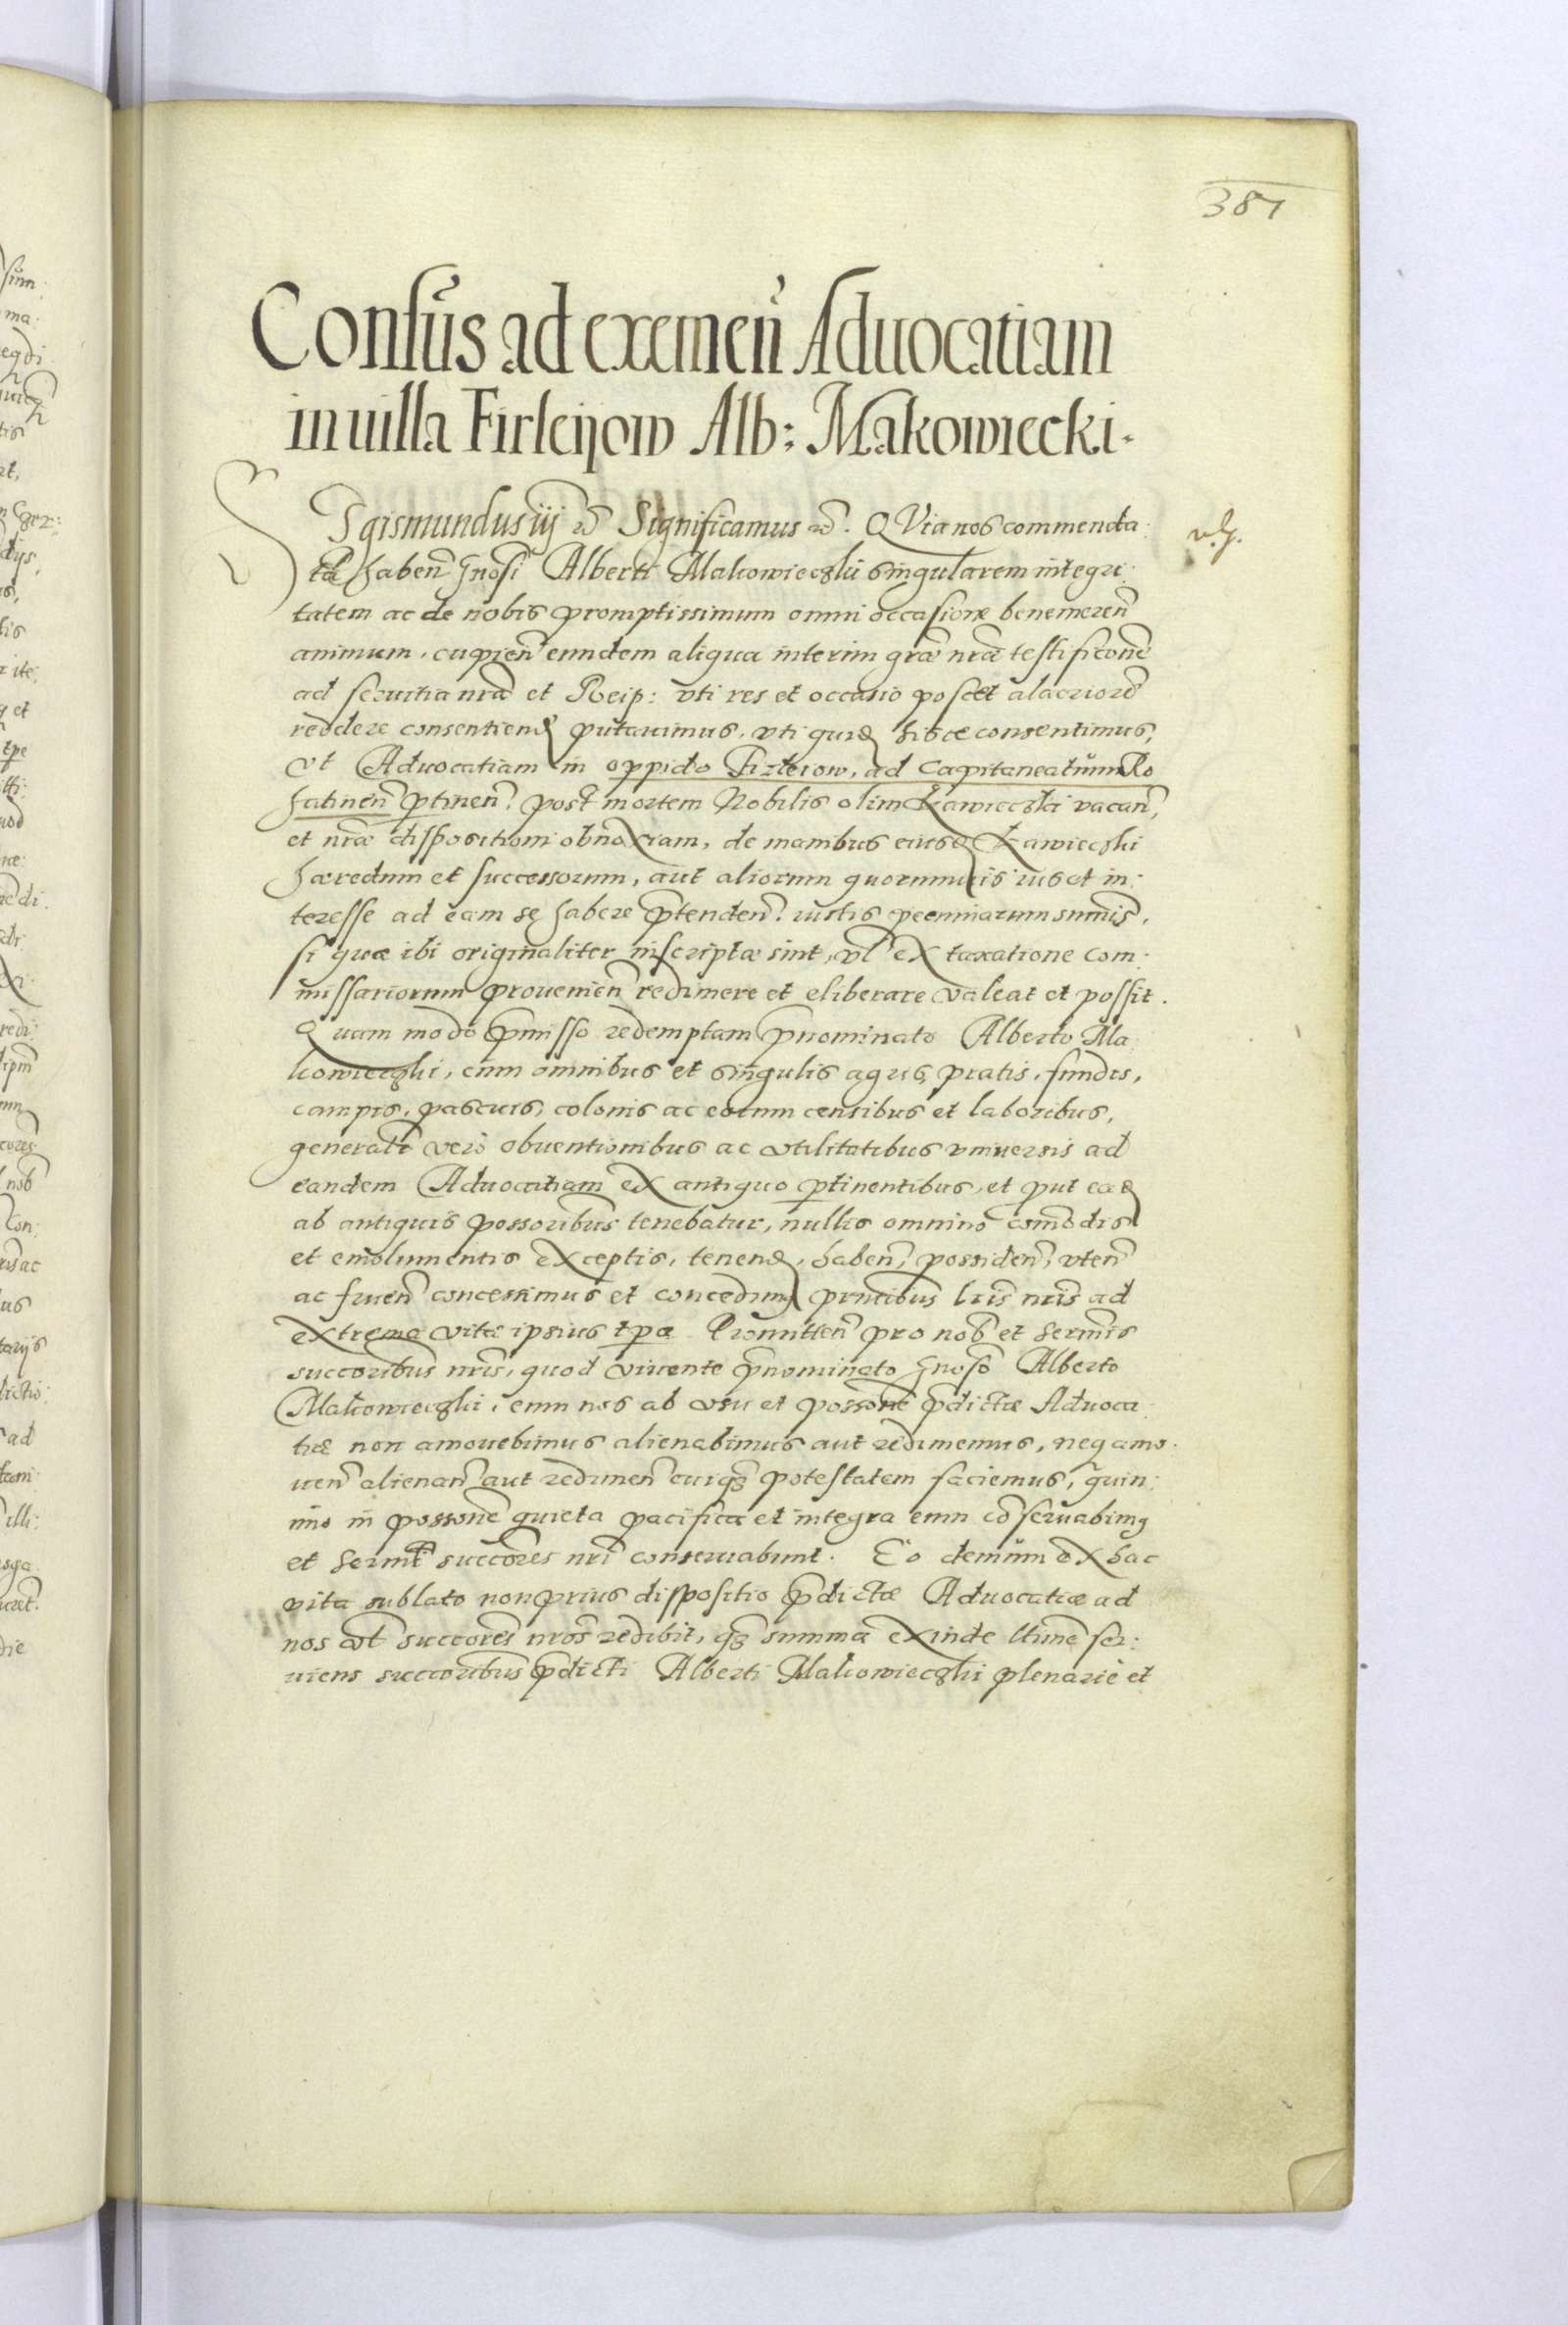 387
Consūs ad exemeñ Aduocatiam
in uilla Firleiiow Alb: Makowiecki.
SIgismundus iij Significamus. QVia nos commenda:
v.g.
tã habeñ Gnosi Alberti Makowieczki singularem integri:
tatem ac de nobis promptissimum omni occasione benemereñ
animum, cupieñ eundem aliqua interim grãe nrãe testificõne
ad seruitia nrã et Reip: vti res et occasio poscet alacriorẽ
reddere consentiend putauimus, vti quid hisce consentimus,
vt Aduocatiam in oppido Firleiow, ad Capitaneatum Ro
hatineñ ptineñ post mortem Nobilis olim Ławieczki vacañ,
et nrãe dispositioni obnoxiam, de manibus eiusd Ławieczki
hæredum et successorum, aut aliorum quorumuis ius et in:
teresse ad eam se habere ptendeñ iustis pecuniarum sumis,
si quæ ibi originaliter inscriptæ sint, vl ex taxatione com:
missariorum prouenieñ redimere et eliberare valeat et possit.
Quam modo pmisso redemptam pnominato Alberto Ma:
kowieczki, cum omnibus et singulis agris, pratis, fundis,
campis, pascuis, colonis ac eorum censibus et laboribus,
generatr vero obuentionibus ac vtilitatibus vniuersis ad
eandem Aduocatiam ex antiquo ptinentibus, et put ead
ab antiquis possoribus tenebatur, nullis omnino comodis
et emolumentis exceptis, tenend, habeñ, possideñ, vteñ
ac frueñ concessimus et concedimus pñtibus lris nris ad
extrema vitæ ipsius tpa Promitteñ pro nob et sermis
succoribus nris, quod viuente pnominato Gnoso Alberto
Makowieczki, eum nos ab vsu et possone pdictæ Aduoca:
tiæ non amouebimus alienabimus aut redimemus, neq amo:
ueñ alienañ aut redimeñ cuiqz potestatem faciemus, quin:
imo in possone quieta pacifica et integra eum coseruabimus
et sermi succores nri conseruabunt. Eo demum ex hac
vita sublato non prius dispositio pdictæ Aduocatiæ ad
nos vl succores nros redibit, qz summa exinde ltime ser:
uiens succoribus pdicti Alberti Makowieczki plenarie et